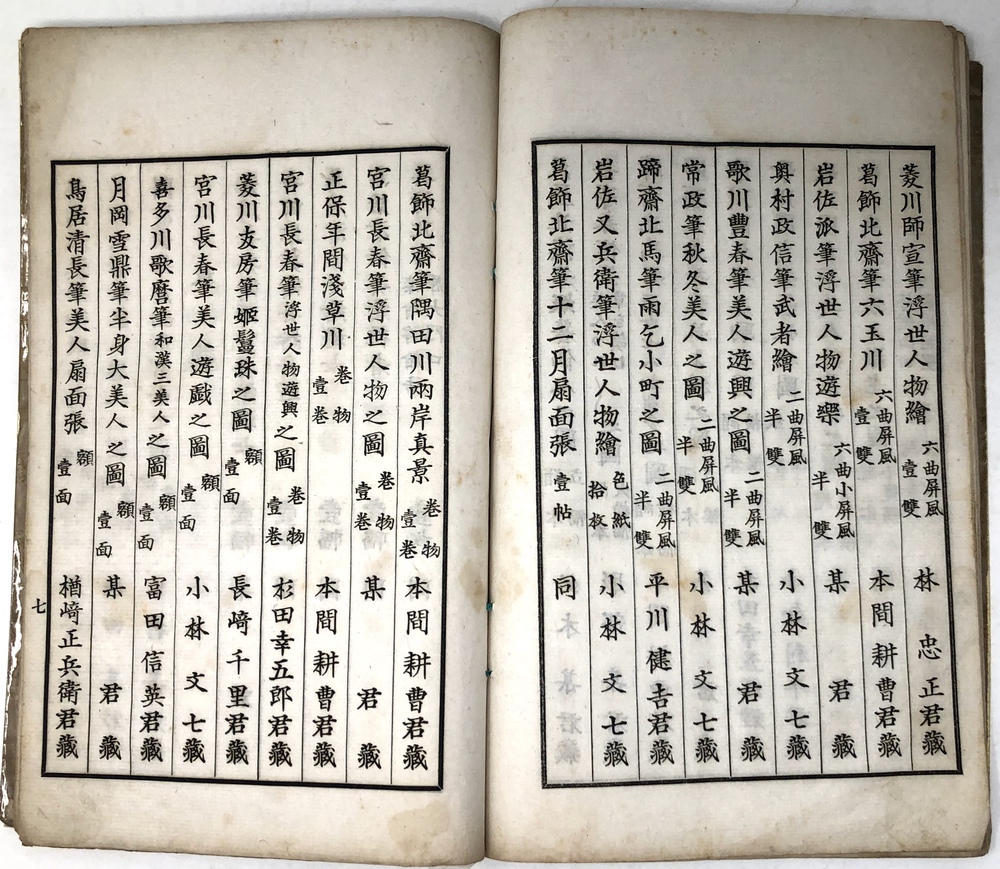 菱川師宣筆浮世人物繪 六曲屏風壹雙 林忠正君藏
葛飾北齋筆六玉川 六曲屏風壹雙 本間耕曹君藏
岩佐派筆浮世人物遊樂 六曲小屏風半雙 某君藏
奧村政信筆武者繪 二曲屏風半雙 小林文七藏
歌川豐春筆美人遊興之圖 二曲屏風半雙 某君藏
常政筆秋冬美人之圖 二曲屏風半雙 小林文七藏
蹄齋北馬筆雨乞小町之圖 二曲屏風半雙 平川健吉君藏
岩佐又兵衛筆浮世人物繪 色紙拾枚 小林文七藏
葛飾北齋筆十二月扇面張 壹帖 同
葛飾北齋筆隅田川兩岸真景 卷物壹卷 本間耕曹君藏
宮川長春筆浮世人物之圖 卷物壹卷 某君藏
正保年間淺草川 卷物壹卷 本間耕曹君藏
宮川長春筆浮世人物遊興之圖 卷物壹卷 杉田幸五郎君藏
菱川友房筆姬鬘珠之圖 額壹面 長崎千里君藏
宮川長春筆美人遊戲之圖 額壹面 小林文七藏
喜多川歌麿筆和漢三美人之圖 額壹面 富田信英君藏
月岡雪鼎筆半身大美人之圖 額壹面 某君藏
鳥居清長筆美人扇面張 額壹面 楢﨑正兵衛君藏
七